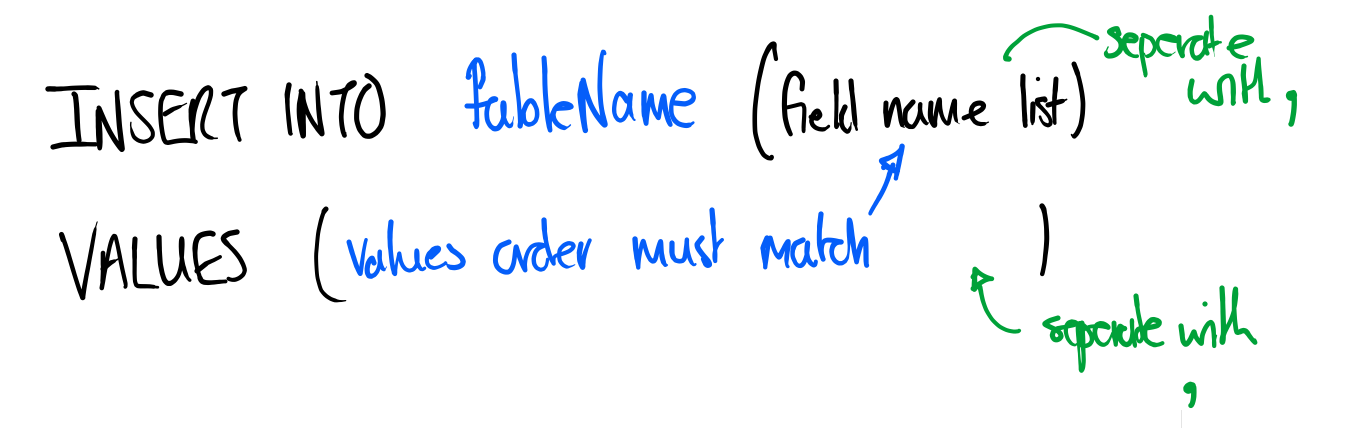 INSERT INTO tableName (field name list)
seperate
with ,
VALUES (values order must match )
seperate with
,